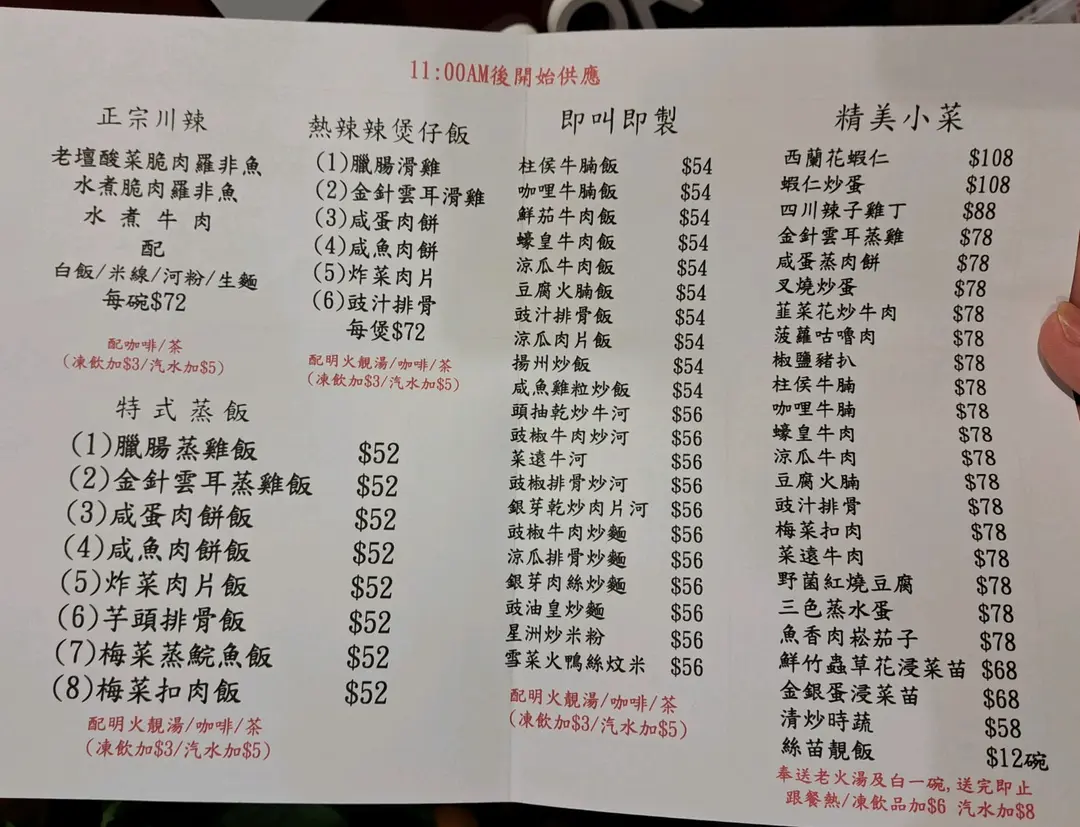 11:00AM後開始供應
正宗川辣
老壇酸菜脆肉羅非魚
水煮脆肉羅非魚
水煮牛肉
配
白飯/米線/河粉/生麵
每碗$72
配咖啡/茶
(凍飲加$3/汽水加$5)
熱辣辣煲仔飯
(1)臘腸滑雞
(2)金針雲耳滑雞
(3)咸蛋肉餅
(4)咸魚肉餅
(5)炸菜肉片
(6)豉汁排骨
每煲$72
配明火靚湯/咖啡/茶
(凍飲加$3/汽水加$5)
特式蒸飯
(1)臘腸蒸雞飯 $52
(2)金針雲耳蒸雞飯 $52
(3)咸蛋肉餅飯 $52
(4)咸魚肉餅飯 $52
(5)炸菜肉片飯 $52
(6)芋頭排骨飯 $52
(7)梅菜蒸鯇魚飯 $52
(8)梅菜扣肉飯 $52
配明火靚湯/咖啡/茶
(凍飲加$3/汽水加$5)
即叫即製
柱侯牛腩飯 $54
咖哩牛腩飯 $54
鮮茄牛肉飯 $54
蠔皇牛肉飯 $54
涼瓜牛肉飯 $54
豆腐火腩飯 $54
豉汁排骨飯 $54
涼瓜肉片飯 $54
揚州炒飯 $54
咸魚雞粒炒飯 $54
頭抽乾炒牛河 $56
豉椒牛肉炒河 $56
菜遠牛河 $56
豉椒排骨炒河 $56
銀芽乾炒肉片河 $56
豉椒牛肉炒麵 $56
涼瓜排骨炒麵 $56
銀芽肉絲炒麵 $56
豉油皇炒麵 $56
星洲炒米粉 $56
雪菜火鴨絲炆米 $56
配明火靚湯/咖啡/茶
(凍飲加$3/汽水加$5)
精美小菜
西蘭花蝦仁 $108
蝦仁炒蛋 $108
四川辣子雞丁 $88
金針雲耳蒸雞 $78
咸蛋蒸肉餅 $78
叉燒炒蛋 $78
韮菜花炒牛肉 $78
菠蘿咕嚕肉 $78
椒鹽豬扒 $78
柱侯牛腩 $78
咖哩牛腩 $78
蠔皇牛肉 $78
涼瓜牛肉 $78
豆腐火腩 $78
豉汁排骨 $78
梅菜扣肉 $78
菜遠牛肉 $78
野菌紅燒豆腐 $78
三色蒸水蛋 $78
魚香肉崧茄子 $78
鮮竹蟲草花浸菜苗 $68
金銀蛋浸菜苗 $68
清炒時蔬 $58
絲苗靚飯 $12碗
奉送老火湯及白一碗,送完即止
跟餐熱/凍飲品加$6 汽水加$8